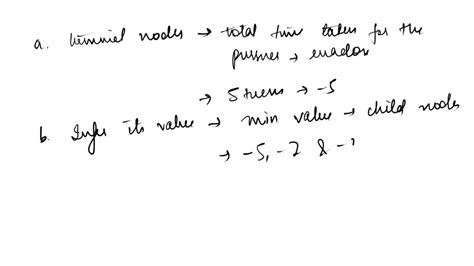 a. terminal nodes → total time taken for the
pursuer → evador
→ 5 turns → -5
b. Infer its value → min value → child nodes
→ -5, -7 & -